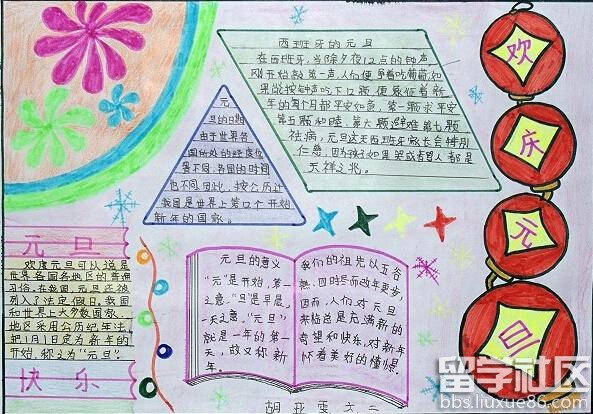 西班牙的元旦
在西班牙,当除夕夜12点的钟声
刚开始敲第一声,人们便争着吃葡萄,如
果能按钟声吃下12颗,便象征着新
年的每个月都平安如意。第一颗求平安
第五颗和睦,第六颗避难,第七颗
祛病,元旦这天西班牙家长会特别
仁慈,因为孩子如果哭或者骂人都是
不祥之兆。
元
旦的日期
由于世界各
国所处的经度位
置不同,各国的时间
也不同,因此,按公历计
我国是世界上第12个开始
新年的国家。
欢
庆
元
旦
元旦
欢度元旦可以说是
世界各国各地区的普遍
习俗,在我国,元旦还被
列入了法定假日。我国
和世界上大多数国家
地区采用公历纪年法,
把1月1日定为新年的
开始,称之为“元旦”。
快乐
元旦的意义
“元”是开始,第一
之意,“旦”是早晨,
一天之意,“元旦”
就是一年的第一
天,故又称新
年。
我们的祖先以五谷
熟,四时毕而改年更岁,
因而,人们对元旦
来临总是充满新的
希望和快乐,对新年
怀着美好的憧憬。
胡亚雯 六二
留学社区
bbs.liuxue86.com